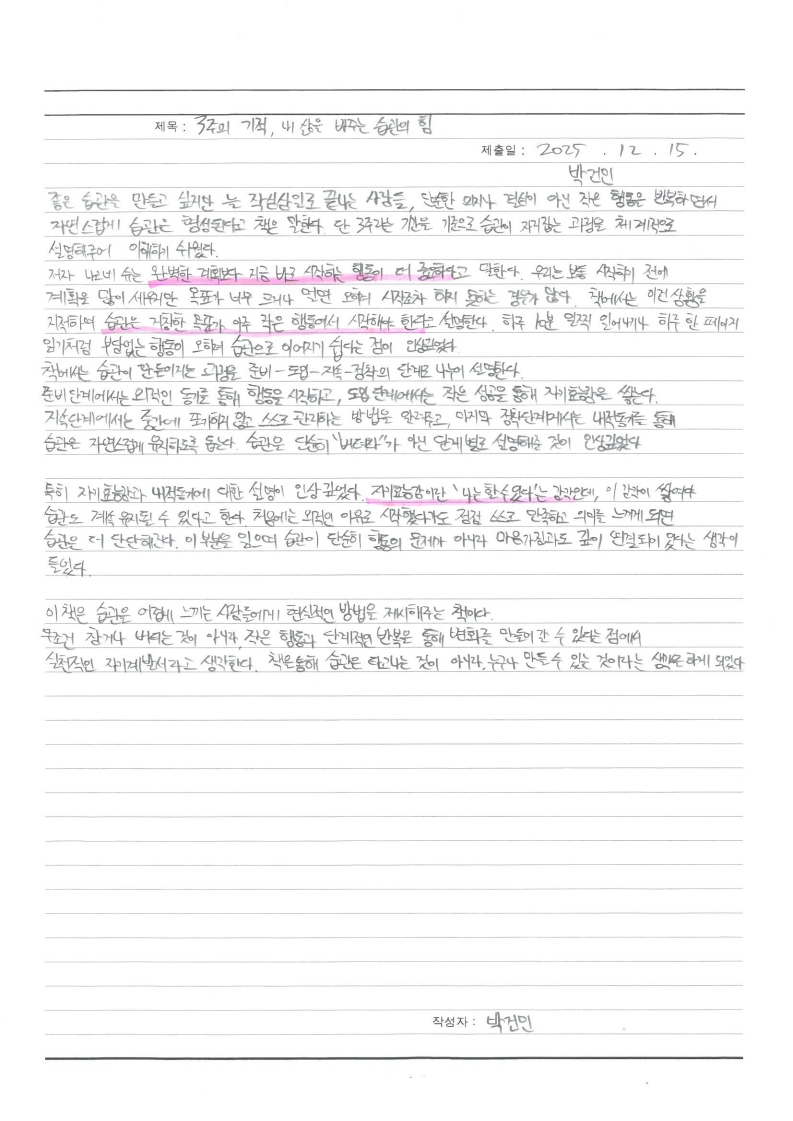 제목 : 3주의 기적, 내 삶을 바꾸는 습관의 힘
제출일 : 2025 . 12 . 15 .
박건민
좋은 습관을 만들고 싶지만 늘 작심삼일로 끝나는 사람들, 단순한 의지나 결심이 아닌 작은 행동을 반복하면서
자연스럽게 습관을 형성한다고 책은 말한다. 단 3주라는 기간을 기준으로 습관이 자리잡는 과정을 체계적으로
설명해주어 이해하기 쉬웠다.
저자 나르네 슈는 완벽한 계획보다 지금 바로 시작하는 행동이 더 중요하다고 말한다. 우리는 보통 시작하기 전에
계획을 많이 세우지만 목표가 너무 크거나 오히려 시작조차 하지 못하는 경우가 많다. 책에서는 이런 상황을
지적하며 습관은 거창한 목표가 아주 작은 행동에서 시작해야 한다고 설명한다. 하루 10분 일찍 일어나기나 하루 한 페이지
읽기처럼 부담없는 행동이 오히려 습관으로 이어지기 쉽다는 점이 인상깊었다.
책에서는 습관이 만들어지는 과정을 준비-도입-지속-정착의 단계로 나누어 설명한다.
준비단계에서는 외적인 동기를 통해 행동을 시작하고, 도입 단계에서는 작은 성공을 통해 자기효능감을 쌓는다.
지속단계에서는 중간에 포기하지 않고 스스로 관리하는 방법을 알려주고, 마지막 정착단계에서는 내적동기를 통해
습관을 자연스럽게 유지하도록 돕는다. 습관을 단순히 "버텨라"가 아닌 단계별로 설명해준 것이 인상깊었다
특히 자기효능감과 내적동기에 대한 설명이 인상 깊었다. 자기효능감이란 '나는 할수있다'는 감각인데, 이 감각이 쌓여야
습관도 계속 유지될 수 있다고 한다. 처음에는 외적인 이유로 시작했다가도 점점 스스로 만족하고 의미를 느끼게 되면
습관은 더 단단해진다. 이 부분을 읽으며 습관이 단순히 행동의 문제가 아니라 마음가짐과도 깊이 연결되어 있다는 생각이
들었다.
이 책은 습관을 어렵게 느끼는 사람들에게 현실적인 방법을 제시해주는 책이다.
무조건 참거나 버티는 것이 아니라, 작은 행동과 단계적인 반복을 통해 변화를 만들어 갈 수 있다는 점에서
실천적인 자기계발서라고 생각한다. 책을통해 습관은 타고나는 것이 아니라, 누구나 만들 수 있는 것이라는 생각을 하게 되었다
작성자 : 박건민